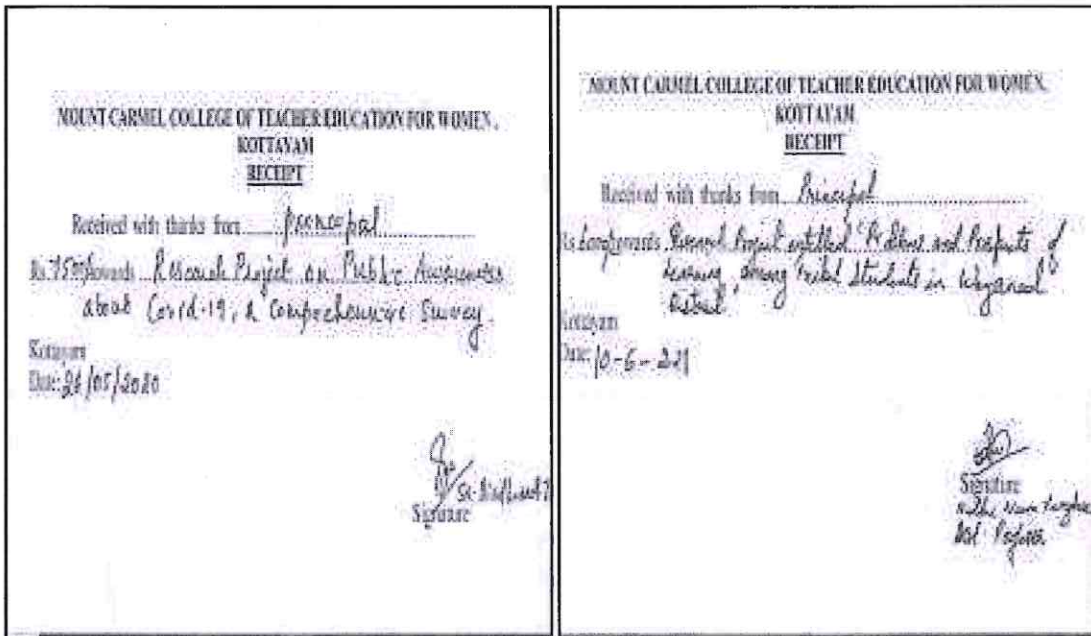 MOUNT CARMEL COLLEGE OF TEACHER EDUCATION FOR WOMEN,
KOTTAYAM
RECEIPT
Received with thanks from Principal
Rs 7500/- towards Research Project on Public Awareness
about Covid-19, a Comprehensive Survey.
Kottayam
Date: /05/2020
Signature
MOUNT CARMEL COLLEGE OF TEACHER EDUCATION FOR WOMEN,
KOTTAYAM
RECEIPT
Received with thanks from Principal
Rs towards Research Project entitled "Problems and Prospects of
Learning among Tribal Students in Wayanad
District
Kottayam
Date: 10-6-
Signature
Asst Professor